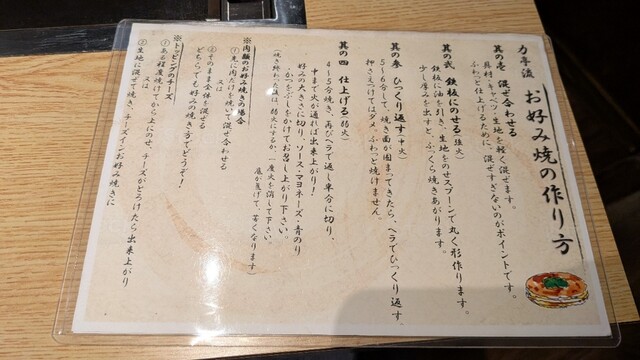 力亭流
お好み焼の作り方
其の壱 混ぜ合わせる
具材・キャベツ・生地を軽く混ぜます。
ふわっと仕上げるために、混ぜすぎないのがポイントです。
其の弐 鉄板にのせる(強火)
鉄板に油を引き、生地をのせスプーンで丸く形作ります。
少し厚みを出すと、ふっくら焼きあがります。
其の参 ひっくり返す(中火)
5〜6分焼きて、焼き面が固まってきたら、ヘラでひっくり返す。
押さえつけてはダメ。ふわっと焼けません。
其の四 仕上げる(弱火)
4〜5分焼き、再びヘラで返し半分に切り、
中まで火が通れば出来上がり!
好みの大きさに切り、ソース・マヨネーズ・青のり
・かつをぶしをかけてお召し上がり下さい。
(焼き終わった後は、弱火にするか、一度火を消して下さい。
底が焦げて、苦くなります)
※肉類のお好み焼の場合
①先に肉だけを焼いて混ぜ合わせる
又は
②そのまま全体を混ぜる
どちらでも好みの焼き方でどうぞ!
※トッピングのチーズ
①ある程度焼けてから上にのせ、チーズがとろけたら出来上がり
又は
②生地に混ぜて焼き、チーズインお好み焼きに